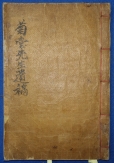 菊雲先生遺稿